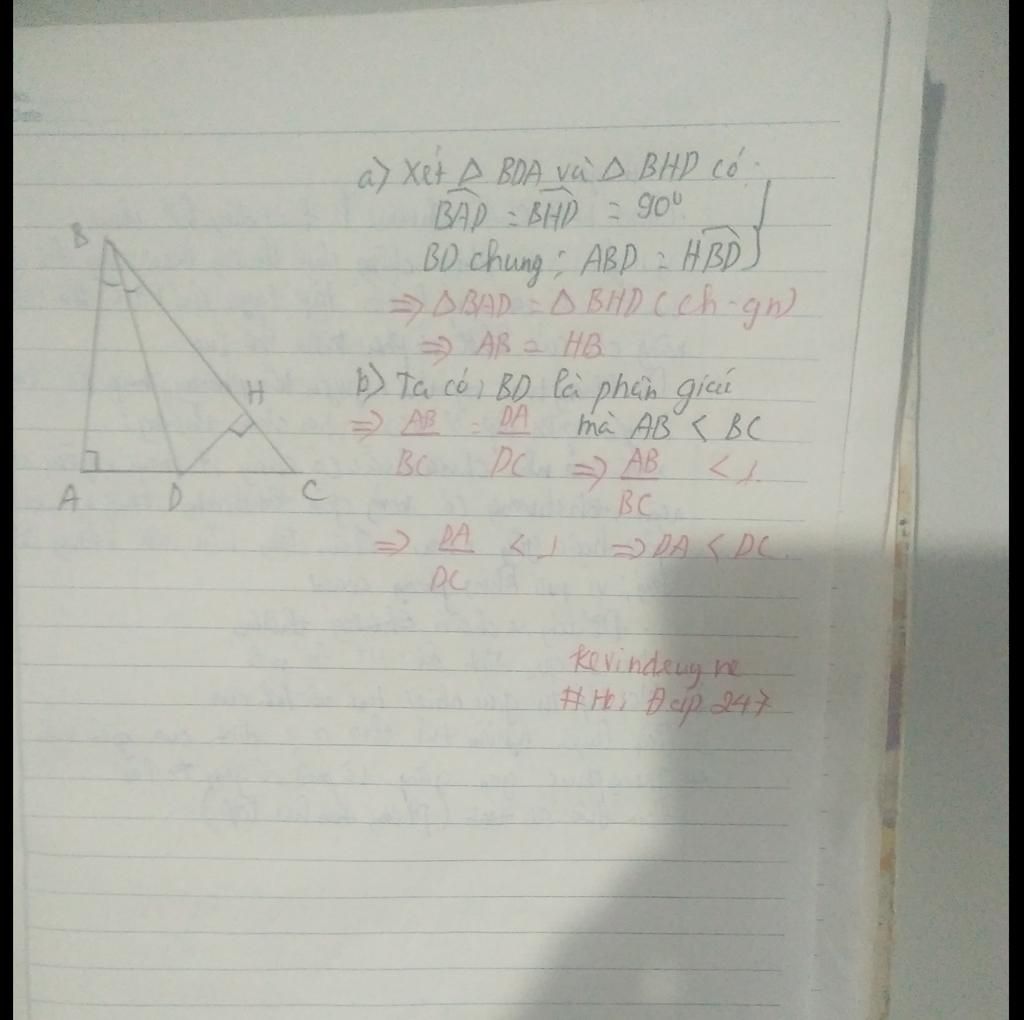 a) Xét Δ BDA và Δ BHD có:
BAD = BHD = 90°
BD chung; ABD = HBD
⇒ Δ BAD = Δ BHD (ch-gn)
⇒ AB = HB
b) Ta có, BD là phân giác
⇒ AB/BC = DA/DC mà AB < BC
⇒ AB/BC < 1.
⇒ DA/DC < 1 ⇒ DA < DC.
B
H
A D C
#Hỏi Đáp 247